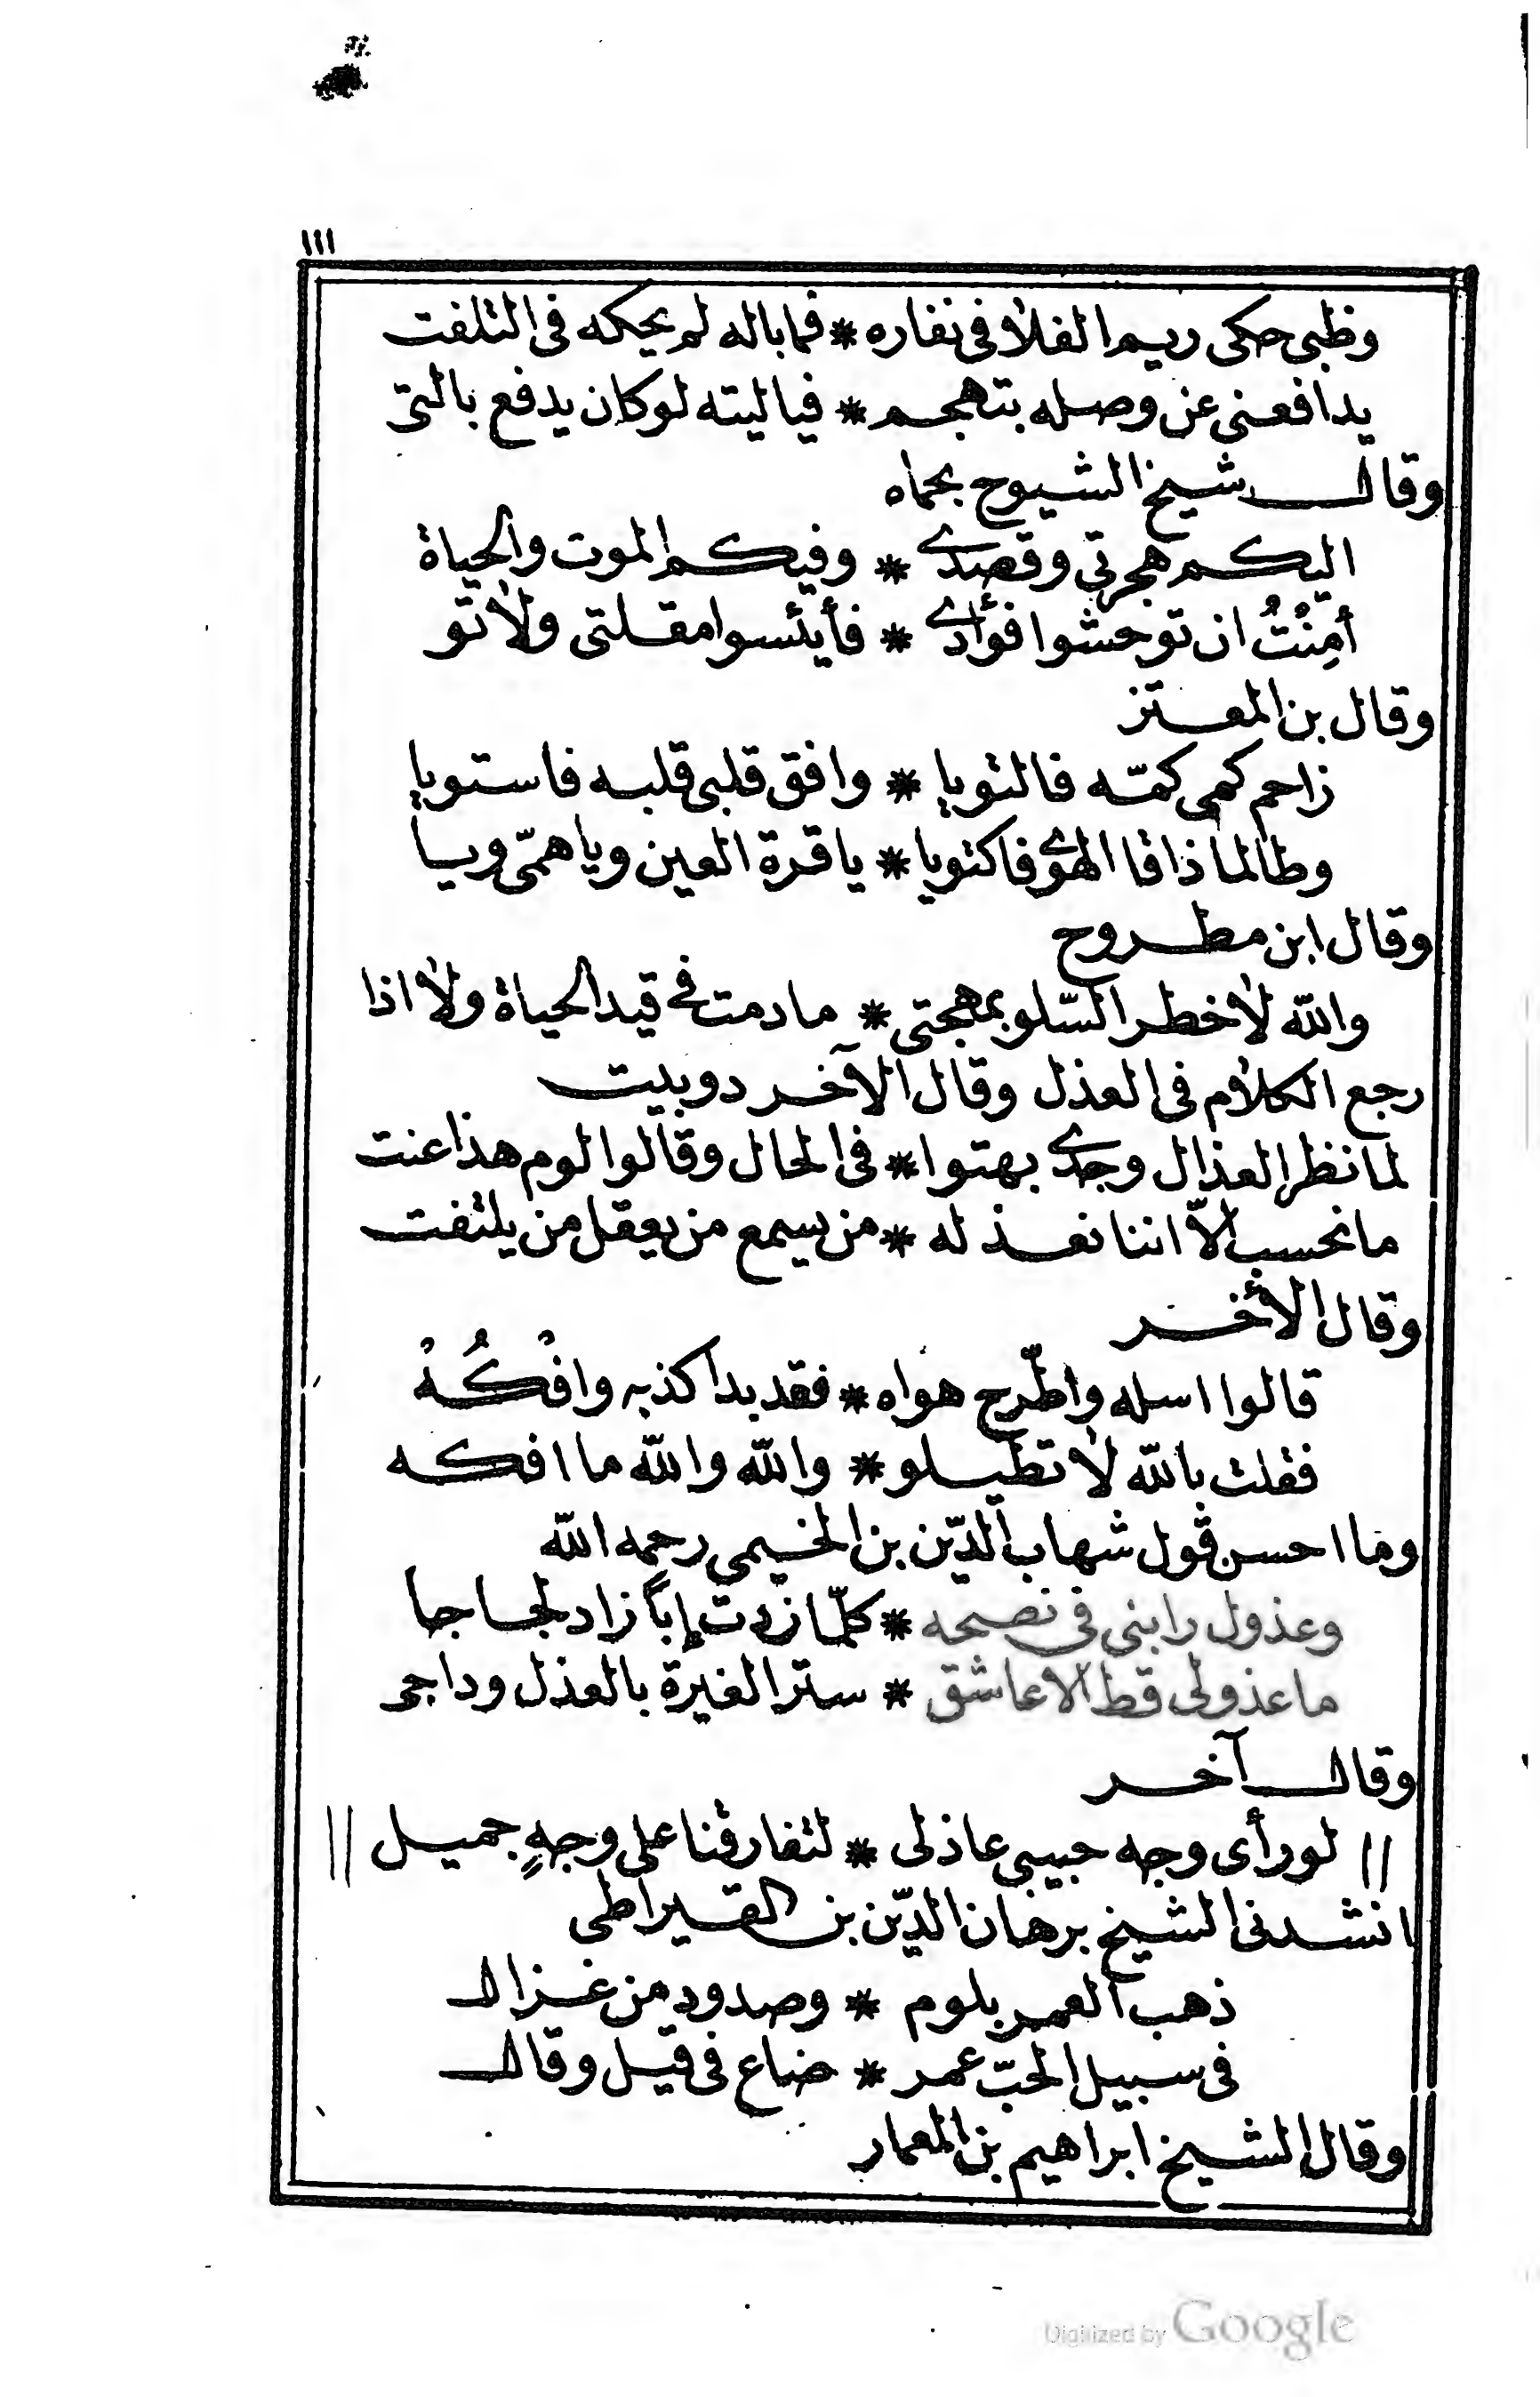 ١١١
وظبى حكى ريم الفلا فى نفاره * فما باله لم يحكه فى التلفت
يدافعنى عن وصله بتهجم * فيا ليته لو كان يدفع بالتى
وقال شيخ الشيوخ بحماه
اليكم هجرتى وقصدى * وفيكم الموت والحياة
أمِنْتُ ان توحشوا فؤادى * فأيئسوا مقلتى ولاتو
وقال بن المعتز
زاحم كمى كمّه فالتويا * وافق قلبى قلبه فاستويا
وطالما ذاقا الهوى فاكتويا * يا قرة العين ويا همّى ويا
وقال ابن مطروح
والله لاخطر السّلو بمهجتى * مادمت فى قيد الحياة ولا اذا
رجع الكلام فى العذل وقال الآخر دوبيت
لما نظر العذال وجدى بهتوا * فى الحال وقالوا لوم هذا عنت
ما نحسب الاّ اننا نعذله * من يسمع من يعقل من يلتفت
وقال الأخر
قالوا اسله واطّرح هواه * فقد بدا كذبه وافْكُهُ
فقلت بالله لا تطيلو * والله والله ما افكه
وما احسن قول شهاب الدّين بن الخيمى رحمه الله
وعذول رابنى فى نصحه * كلّما زدت إباً زاد لجاجا
ما عذولى قط الا عاشق * ستر الغيرة بالعذل وداجى
وقال آخر
لو رأى وجه حبيبى عاذلى * لتفارقنا على وجهٍ جميل
انشدنى الشيخ برهان الدّين بن القيراطى
ذهب العمر بلوم * وصدود من غزال
فى سبيل الحبّ عمر * ضاع فى قيل وقال
وقال الشيخ ابراهيم بن المعمار
Digitized by Google